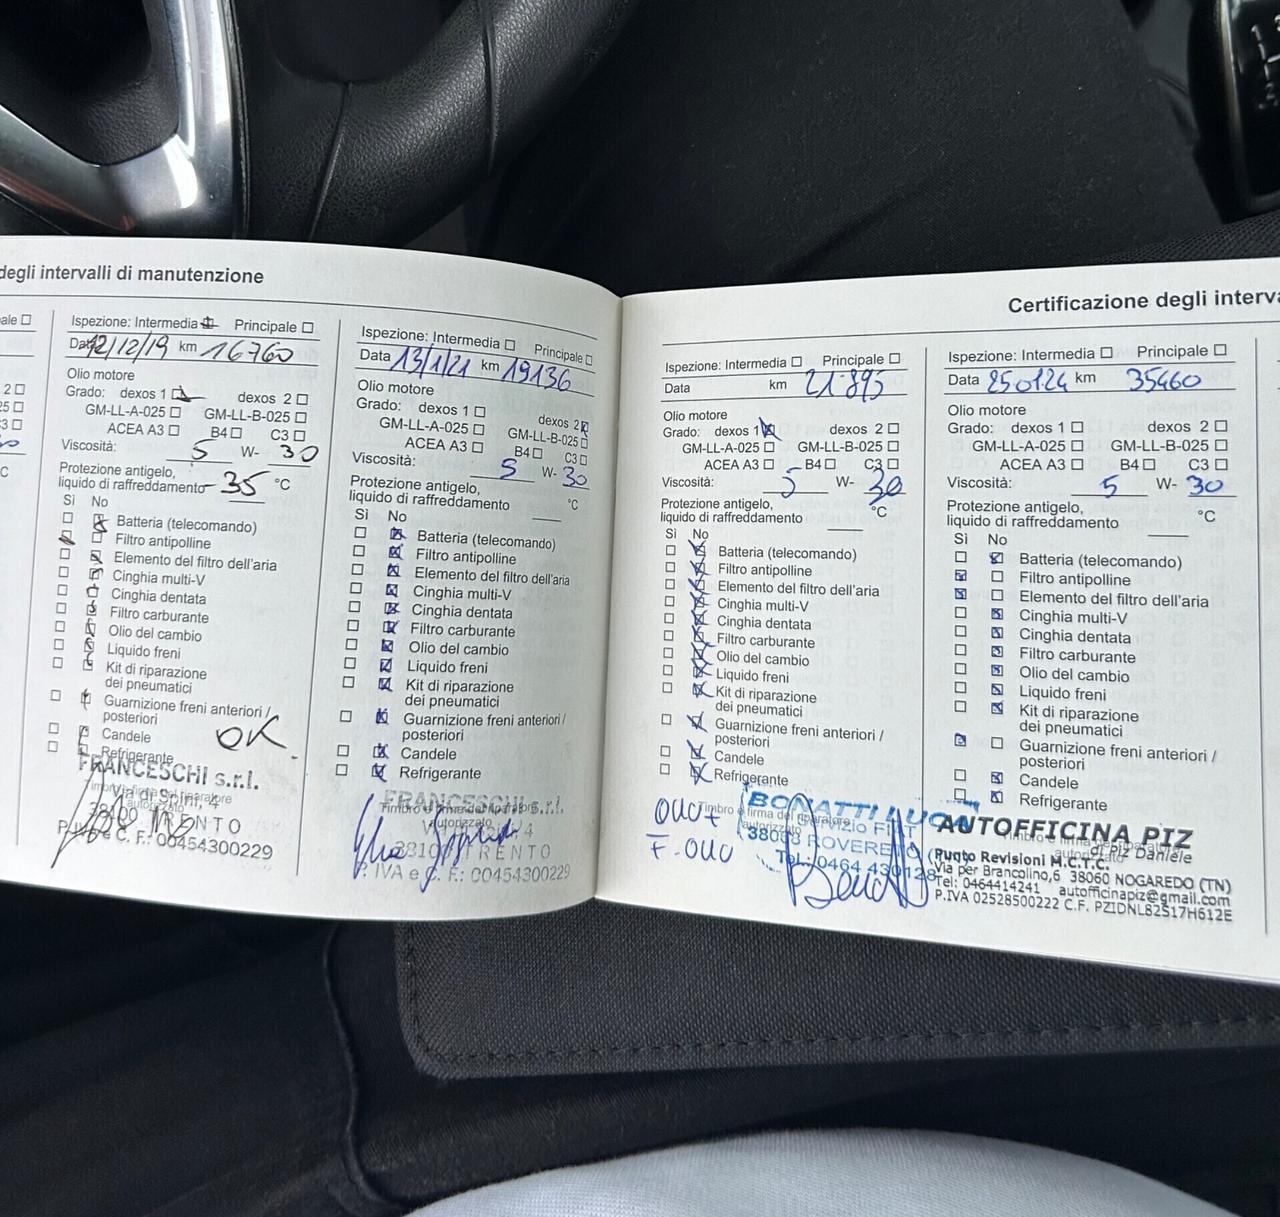 degli intervalli di manutenzione
ale
2
25
C3
°C
Ispezione: Intermedia Principale
Data 12/12/19 km 16760
Olio motore
Grado: dexos 1 dexos 2
GM-LL-A-025 GM-LL-B-025
ACEA A3 B4 C3
Viscosità: 5 W- 30
Protezione antigelo,
liquido di raffreddamento -35 °C
Sì No
Batteria (telecomando)
Filtro antipolline
Elemento del filtro dell'aria
Cinghia multi-V
Cinghia dentata
Filtro carburante
Olio del cambio
Liquido freni
Kit di riparazione
dei pneumatici
Guarnizione freni anteriori /
posteriori
Candele OK
Refrigerante
FRANCESCHI s.r.l.
Timbro e firma del riparatore
autorizzato
Via di Spini, 4
TRENTO
P. IVA e C. F.: 00454300229
Ispezione: Intermedia Principale
Data 13/1/21 km 19136
Olio motore
Grado: dexos 1 dexos 2
GM-LL-A-025 GM-LL-B-025
ACEA A3 B4 C3
Viscosità: 5 W- 30
Protezione antigelo,
liquido di raffreddamento °C
Sì No
Batteria (telecomando)
Filtro antipolline
Elemento del filtro dell'aria
Cinghia multi-V
Cinghia dentata
Filtro carburante
Olio del cambio
Liquido freni
Kit di riparazione
dei pneumatici
Guarnizione freni anteriori /
posteriori
Candele
Refrigerante
FRANCESCHI s.r.l.
Timbro e firma del riparatore
autorizzato
4
TRENTO
P. IVA e C. F.: 00454300229
Certificazione degli interva
Ispezione: Intermedia Principale
Data km 21895
Olio motore
Grado: dexos 1 dexos 2
GM-LL-A-025 GM-LL-B-025
ACEA A3 B4 C3
Viscosità: 5 W- 30
Protezione antigelo,
liquido di raffreddamento °C
Sì No
Batteria (telecomando)
Filtro antipolline
Elemento del filtro dell'aria
Cinghia multi-V
Cinghia dentata
Filtro carburante
Olio del cambio
Liquido freni
Kit di riparazione
dei pneumatici
Guarnizione freni anteriori /
posteriori
Candele
Refrigerante
BONATTI LUCA
Timbro e firma del riparatore
autorizzato
Servizio
38068 ROVERETO
F. OLIO
Tel. 0464 430128
Ispezione: Intermedia Principale
Data 250124 km 35460
Olio motore
Grado: dexos 1 dexos 2
GM-LL-A-025 GM-LL-B-025
ACEA A3 B4 C3
Viscosità: 5 W- 30
Protezione antigelo,
liquido di raffreddamento °C
Sì No
Batteria (telecomando)
Filtro antipolline
Elemento del filtro dell'aria
Cinghia multi-V
Cinghia dentata
Filtro carburante
Olio del cambio
Liquido freni
Kit di riparazione
dei pneumatici
Guarnizione freni anteriori /
posteriori
Candele
Refrigerante
AUTOFFICINA PIZ
di Piz Daniele
Punto Revisioni M.C.T.C.
Via per Brancolino,6 38060 NOGAREDO (TN)
Tel: 0464414241 autofficinapiz@gmail.com
P.IVA 02528500222 C.F. PZIDNL82S17H612E